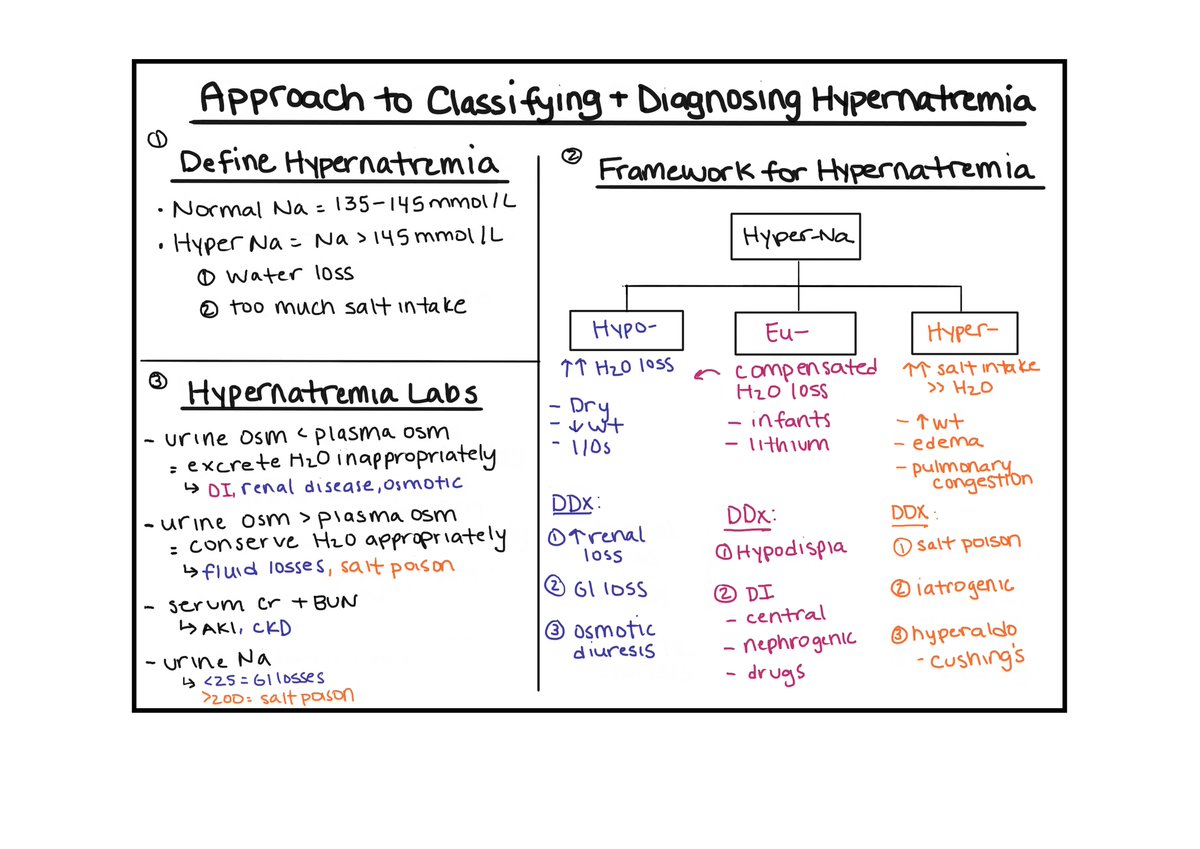 Approach to Classifying + Diagnosing Hypernatremia
①
Define Hypernatremia
• Normal Na = 135-145 mmol/L
• Hyper Na = Na > 145 mmol/L
① Water loss
② too much salt intake
②
Framework for Hypernatremia
Hyper-Na
Hypo-
↑↑ H2O loss
- Dry
- ↓ wt
- I/Os
DDx:
① ↑ renal
loss
② GI loss
③ osmotic
diuresis
Eu-
← compensated
H2O loss
- infants
- lithium
DDx:
① Hypodispia
② DI
- central
- nephrogenic
- drugs
Hyper-
↑↑ salt intake
>> H2O
- ↑ wt
- edema
- pulmonary
congestion
DDX:
① salt poison
② iatrogenic
③ hyperaldo
- cushing's
③
Hypernatremia Labs
- urine osm < plasma osm
= excrete H2O inappropriately
↳ DI, renal disease, osmotic
- urine osm > plasma osm
= conserve H2O appropriately
↳ fluid losses, salt poison
- serum cr + BUN
↳ AKI, CKD
- urine Na
↳ <25 = GI losses
>200 = salt poison